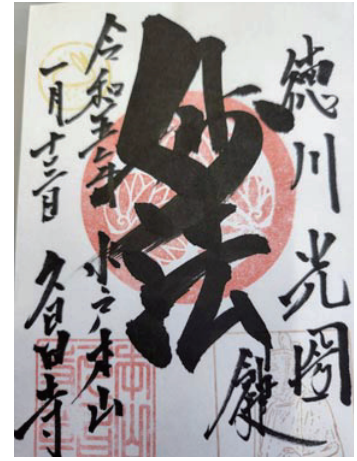 徳川光圀
妙法
令和五年
一月十三日
水戸ノ本山
久昌寺